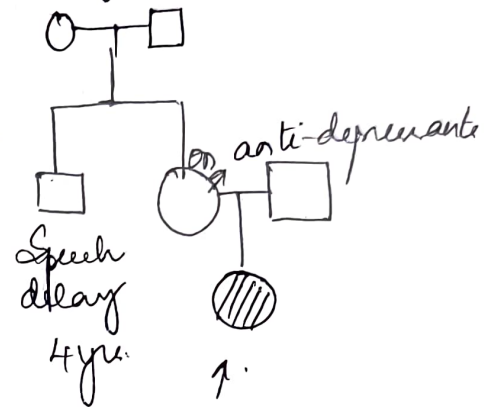 on anti-depressants
Speech
delay
4 yrs.